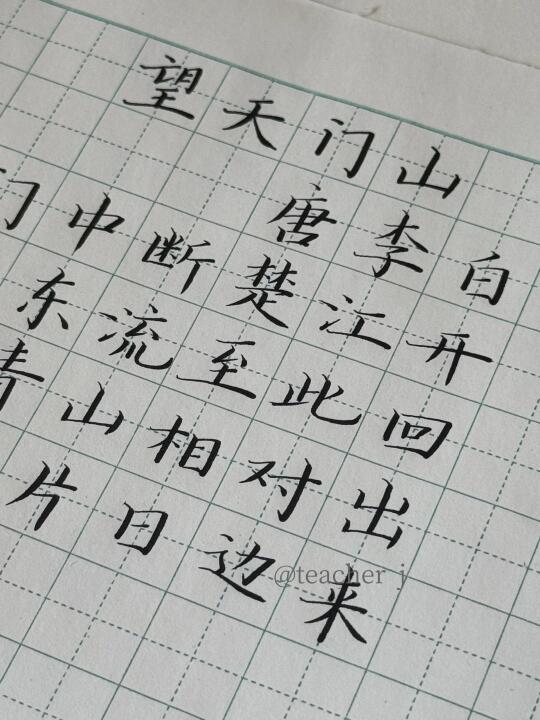 望天门山
唐李白
门中断楚江开
东流至此回
青山相对出
片日边来
@teacher j